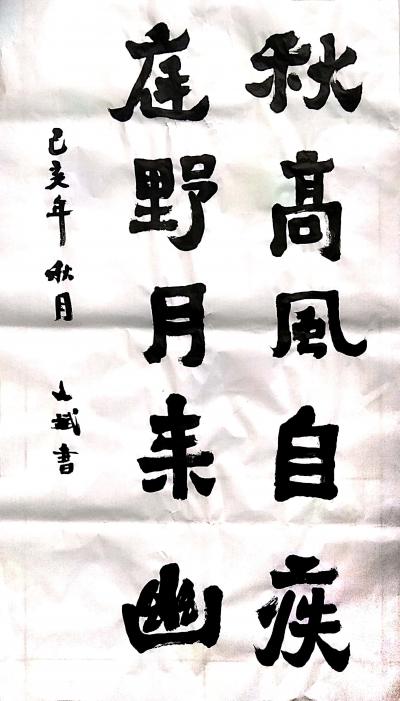 秋高風自疾
庭野月来幽
己亥年 秋月 山斌書